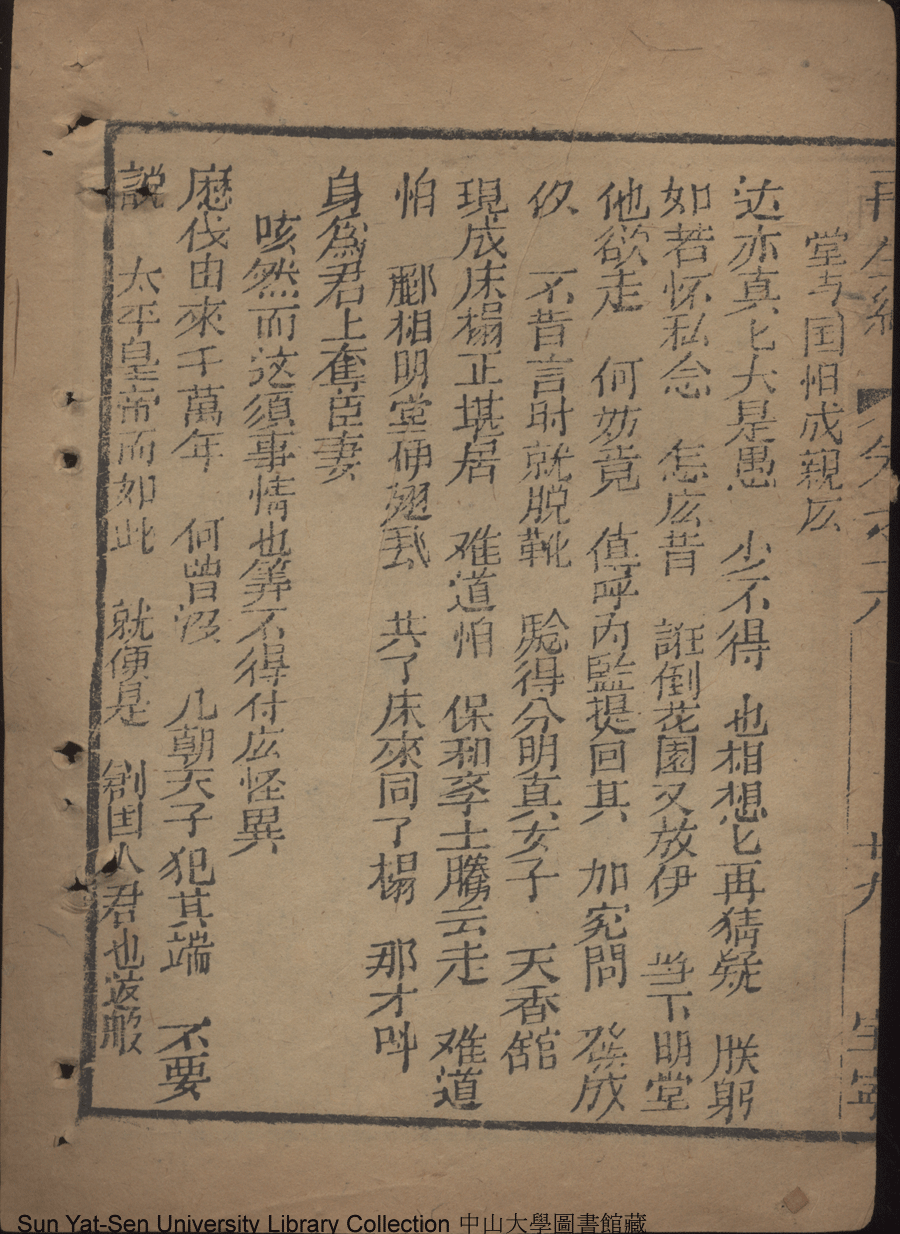 再生緣
卷之十六
廿九
堂与国怕成親庅
达亦真匕大是愚 少不得 也相想匕再猜疑 朕躬
如若怀私念 怎庅昔 誆倒花園又放伊 当下明堂
他欲走 何妨竟 值呼內監提回其 加究問 候成
伩 不昔言时就脱靴 騐得分明真女子 天香舘
現成床榻正堪居 难道怕 保和孝士騰云走 难道
怕 郦相明堂便翅飛 共了床來同了榻 那才呌
身為君上奪臣妻
咳然而这須事情也筭不得付庅怪異
歷伐由來千萬年 何曾没 几朝天子犯其端 不要
說 太平皇帝而如此 就便是 創国人君也這般
Sun Yat-Sen University Library Collection 中山大學圖書館藏